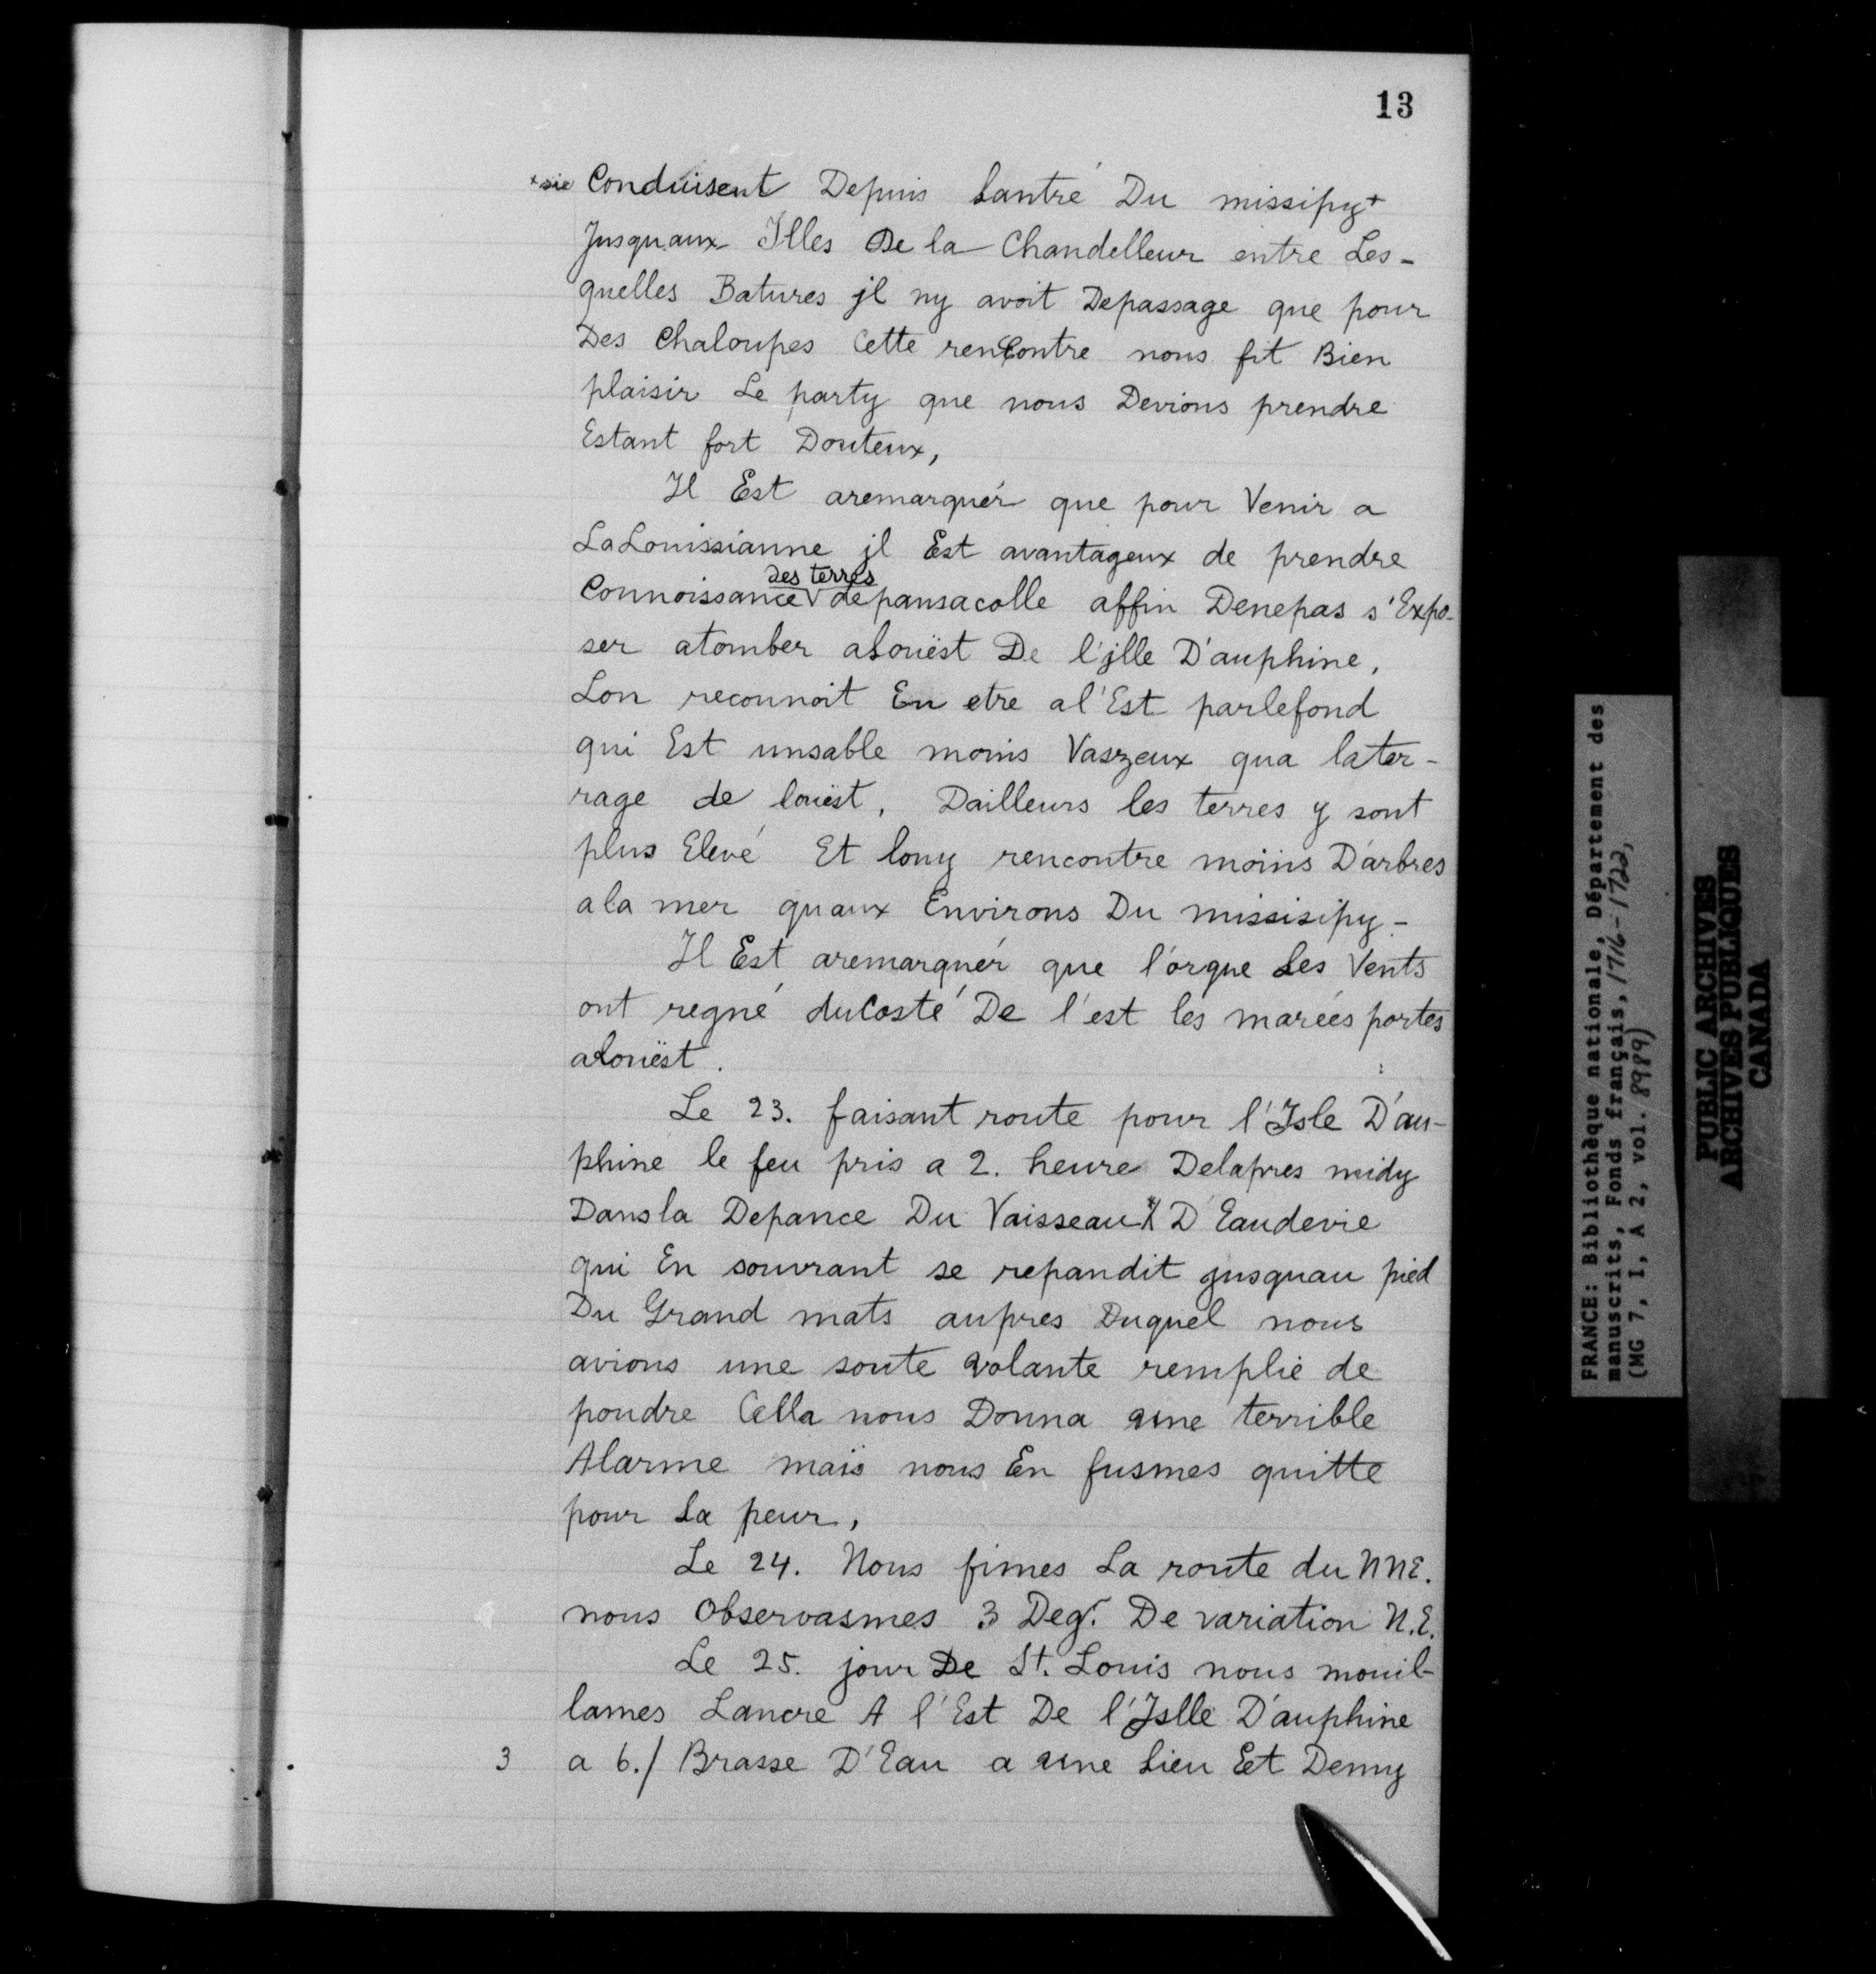 13
+sic Conduisent Depuis Lantré Du missipy+
Jusquaux Illes De la Chandelleur entre Les-
quelles Batures jl ny avoit Depassage que pour
Des Chaloupes Cette renContre nous fit Bien
plaisir Le party que nous Devions prendre
Estant fort Douteux,
Il Est aremarquér que pour Venir a
LaLouissianne jl Est avantageux de prendre
des terres
Connoissance depansacolle affin Denepas s'Expo-
ser atomber aLouëst De l'jlle D'auphine,
Lon reconnoit En etre al'Est parlefond
qui Est unsable moins Vaszeux qua later-
rage de louëst, Dailleurs les terres y sont
plus Elevé Et lony rencontre moins D'arbres
ala mer quaux Environs Du missisipy-
Il Est aremarquér que l'orque Les Vents
ont regné duCosté De l'est les marées portes
aLouëst.
Le 23. faisant route pour l'Isle D'au-
phine le feu pris a 2. heure Delapres midy
Dansla Depance Du Vaisseau D'Eaudevie
qui En souvrant se repandit jusquau pied
Du Grand mats aupres Duquel nous
avions une soute volante remplie de
poudre Cella nous Donna une terrible
Alarme mais nous En fusmes quitte
pour La peur,
Le 24. Nous fimes La route du NNE.
nous Observasmes 3 Degr. De variation N.E.
Le 25. jour De St. Louis nous mouil-
lames Lancre A l'Est De l'Islle D'auphine
3 a 6./ Brasse D'Eau a une Lieu Eet Demy
FRANCE: Bibliothèque nationale, Département des
manuscrits, Fonds français, 1716-1722,
(MG 7, I, A 2, vol. 8989)
PUBLIC ARCHIVES
ARCHIVES PUBLIQUES
CANADA